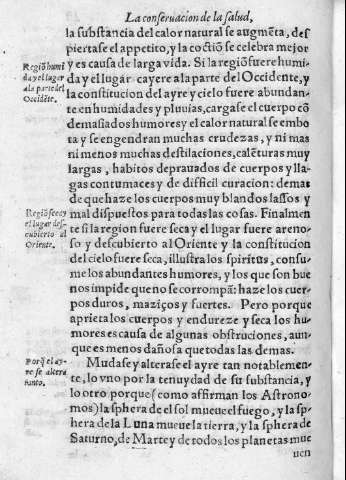 La conseruacion de la salud,
la substancia del calor natural se augmẽta, des
piertase el appetito, y la coctiõ se celebra mejor
y es causa de larga vida. Si la regiõ fuere humi-
da y el lugar cayere a la parte del Occidente, y
la constitucion del ayre y cielo fuere abundan-
te en humidades y pluuias, cargase el cuerpo cõ
demasiados humores y el calor natural se embo
ta y se engendran muchas crudezas, y ni mas
ni menos muchas destilaciones, calẽturas muy
largas, habitos deprauados de cuerpos y lla-
gas contumaces y de difficil curacion: demas
de que haze los cuerpos muy blandos lassos y
mal dispuestos para todas las cosas. Finalmen
te si la region fuere seca y el lugar fuere areno-
so y descubierto al Oriente y la constitucion
del cielo fuere seca, illustra los spiritus, consu-
me los abundantes humores, y los que son bue
nos impide que no se corrompã: haze los cuer-
pos duros, maziços y fuertes. Pero porque
aprieta los cuerpos y endureze y seca los hu-
mores es causa de algunas obstruciones, aun-
que es menos dañosa que todas las demas.
Mudase y alterase el ayre tan notablemen-
te, lo vno por la tenuydad de su substancia, y
lo otro porque (como affirman los Astrono-
mos) la sphera de el sol mueue el fuego, y la sp-
hera de la Luna mueue la tierra, y la sphera de
Saturno, de Marte y de todos los planetas mue
uen
Regiõ humi
da y el lugar
a la parte del
Occidẽte.
Regiõ seca y
el lugar des-
cubierto al
Oriente.
Porq̃ el ay-
re se altera
tanto.